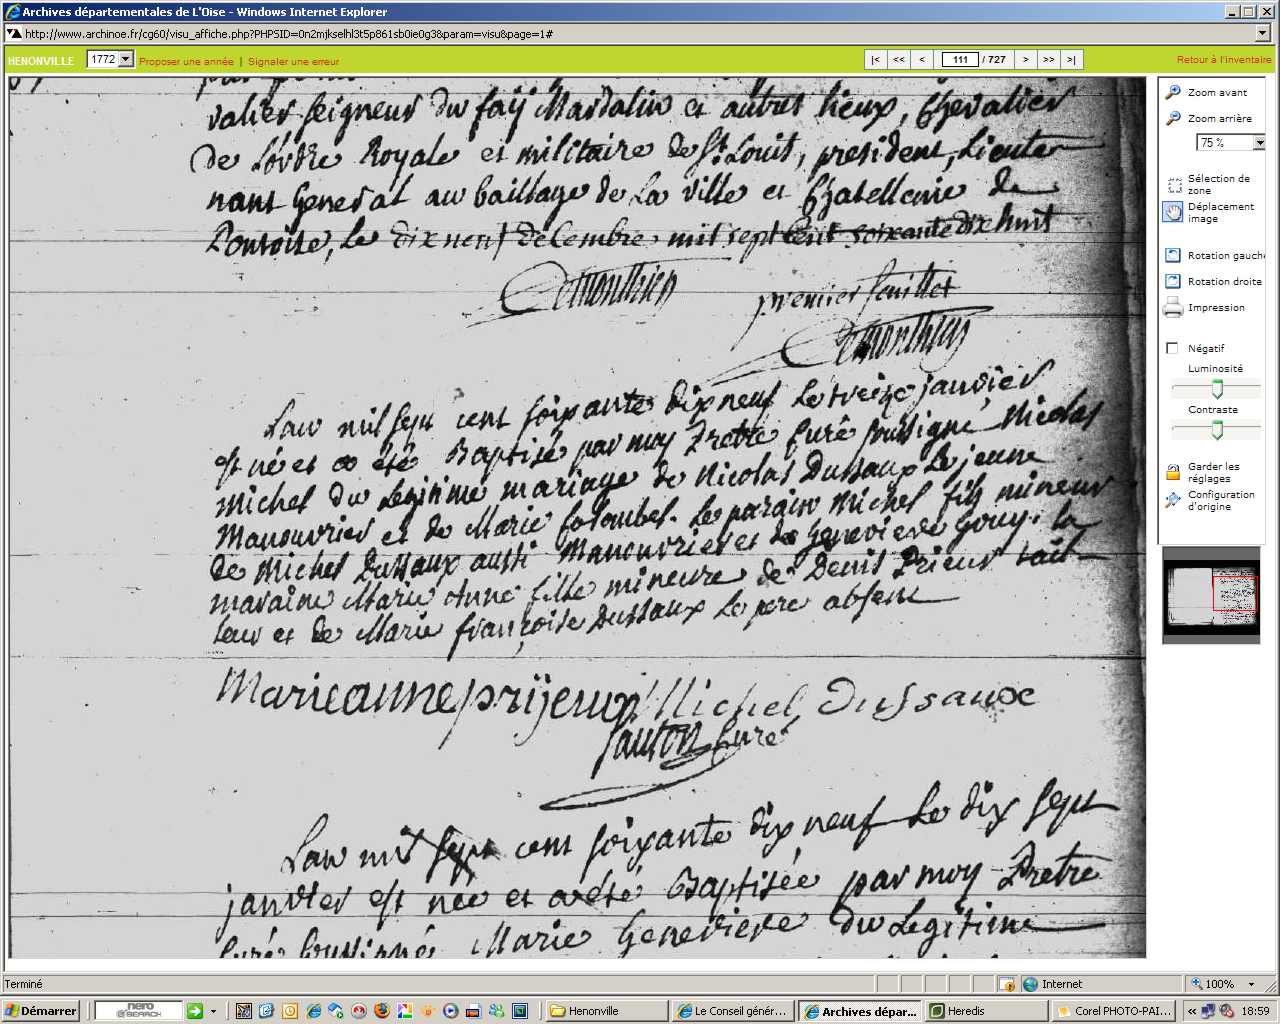 Archives départementales de L'Oise - Windows Internet Explorer
http://www.archinoe.fr/cg60/visu_affiche.php?PHPSID=0n2mjkselhl3t5p861sb0ie0g3&param=visu&page=1#
HENONVILLE 1772 Proposer une année | Signaler une erreur |< << < 111 / 727 > >> >| Retour à l'inventaire
valier seigneur du faÿ Mardalin et autres lieux, Chevalier
de L'ordre Royale et militaire de St. Louit, president, Lieute
nant General au bailliage de La ville et Chatellenie de
Pontoise, Le dix neuf decembre mil sept cent soixante dix huit
Lemonthier
premier feuillet
Lemonthier
Lan mil sept cent soixante dix neuf Le treize janvier
est né et a été Baptisé par moy Pretre Curé soussigné Nicolas
Michel du Legitime mariage de Nicolas Dussaux Le jeune
Manouvrier et de Marie Colombel. Le parain Michel fils mineur
de Michel Dussaux aussi Manouvrier et de Genevieve Gouy. La
maraine Marie Anne fille mineure de Denis Prieur tail-
leur et de Marie françoise Dussaux Le pere absent
Marieanneprijeur Michel Dussaux
Santon Curé
Lan mil sept cent soixante dix neuf Le dix sept
janvier est née et a été Baptisée par moy Pretre
Curé soussigné Marie Genevieve du Legitime
Zoom avant
Zoom arrière
75 %
Sélection de
zone
Déplacement
image
Rotation gauche
Rotation droite
Impression
Négatif
Luminosité
Contraste
Garder les
réglages
Configuration
d'origine
Terminé Internet 100%
Démarrer nero SEARCH Henonville Le Conseil génér... Archives dépar... Heredis Corel PHOTO-PAI... 18:59